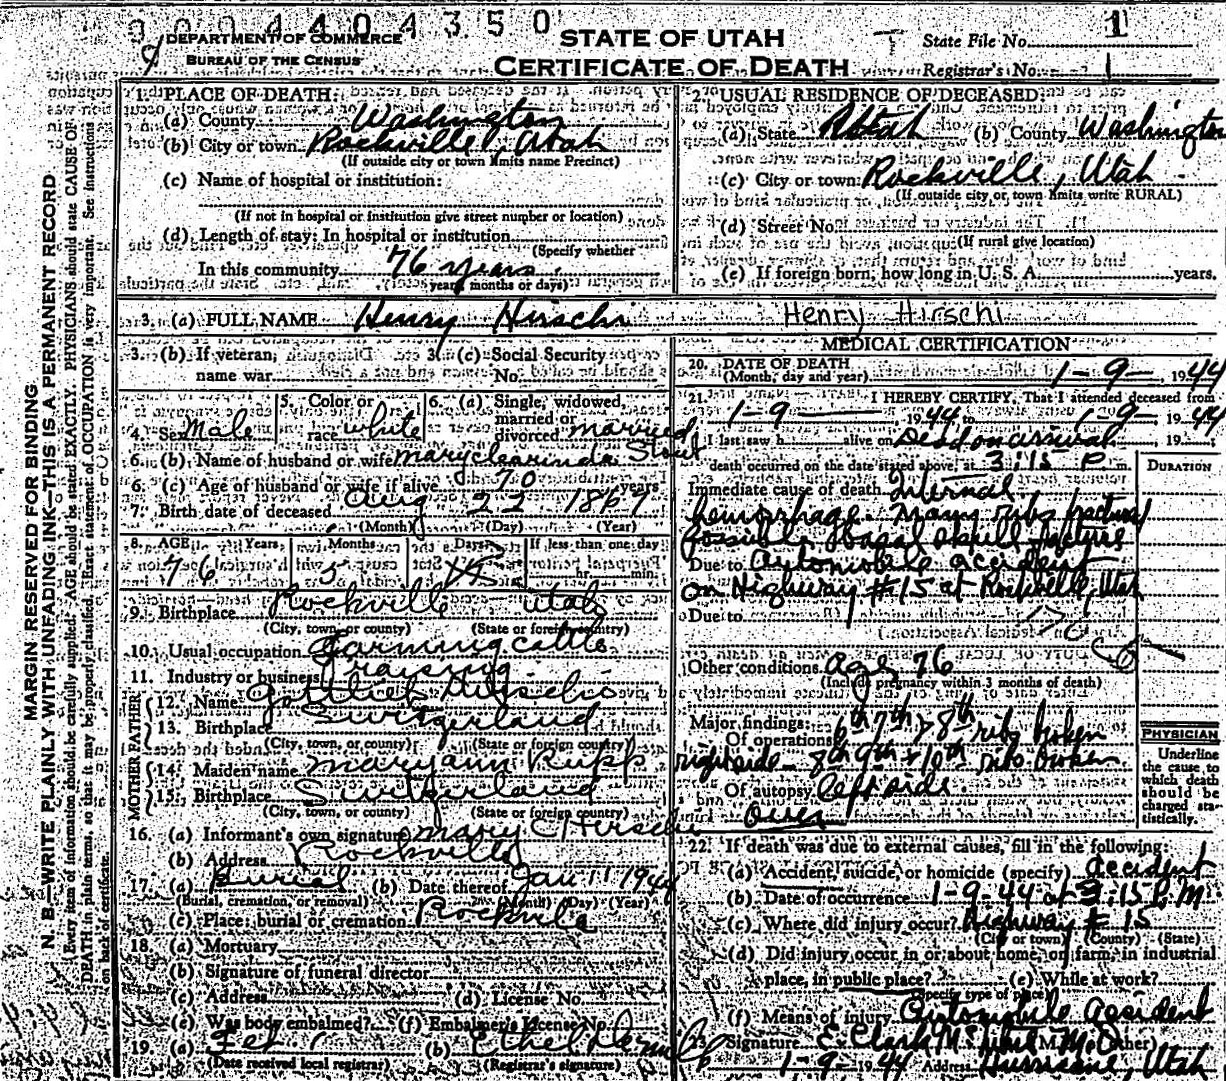 3 0 0 4 4 0 4 3 5 0
DEPARTMENT OF COMMERCE
BUREAU OF THE CENSUS
STATE OF UTAH
CERTIFICATE OF DEATH
State File No. 1
Registrar's No. 1
MARGIN RESERVED FOR BINDING
N. B.—WRITE PLAINLY WITH UNFADING INK—THIS IS A PERMANENT RECORD
Every item of information should be carefully supplied. AGE should be stated EXACTLY. PHYSICIANS should state CAUSE OF
DEATH in plain terms, so that it may be properly classified. Exact statement of OCCUPATION is very important. See instructions
on back of certificate.
1. PLACE OF DEATH:
(a) County Washington
(b) City or town Rockville, Utah
(If outside city or town limits name Precinct)
(c) Name of hospital or institution:
(If not in hospital or institution give street number or location)
(d) Length of stay: In hospital or institution
(Specify whether
In this community 76 years.
years, months or days)
2. USUAL RESIDENCE OF DECEASED:
(a) State Utah (b) County Washington
(c) City or town Rockville, Utah.
(If outside city or town limits write RURAL)
(d) Street No.
(If rural give location)
(e) If foreign born, how long in U. S. A. years.
3. (a) FULL NAME Henry Hirschi Henry Hirschi
3. (b) If veteran, name war
3. (c) Social Security No.
4. Sex Male
5. Color or race white
6. (a) Single, widowed, married or divorced married
6. (b) Name of husband or wife Mary Clarinda Stout
6. (c) Age of husband or wife if alive 70 years
7. Birth date of deceased Aug 22 1867
(Month) (Day) (Year)
8. AGE Years Months Days If less than one day
76 hr. min.
9. Birthplace Rockville Utah
(City, town, or county) (State or foreign country)
10. Usual occupation Farming cattle
11. Industry or business raising
FATHER
12. Name Gottlieb Hirschi
13. Birthplace Switzerland
(City, town, or county) (State or foreign country)
MOTHER
14. Maiden name Mary Ann Rupp
15. Birthplace Switzerland
(City, town, or county) (State or foreign country)
16. (a) Informant's own signature Mary C Hirschi
(b) Address Rockville
17. (a) Burial (b) Date thereof Jan 11 1944
(Burial, cremation, or removal) (Month) (Day) (Year)
(c) Place: burial or cremation Rockville
18. (a) Mortuary
(b) Signature of funeral director
(c) Address (d) License No.
(e) Was body embalmed? (f) Embalmer's License No.
19. (a) (b) Ethel
(Date received local registrar) (Registrar's signature)
MEDICAL CERTIFICATION
20. DATE OF DEATH
(Month, day and year) 1-9-, 1944
21. I HEREBY CERTIFY, That I attended deceased from
1-9- 1944 to 1-9- 1944
I last saw h alive on Dead on arrival, 19
death occurred on the date stated above, at 3:15 P m.
DURATION
Immediate cause of death Internal
hemorrhage. Many ribs fractured
possible basal skull fracture
Due to Automobile accident
on Highway #15 at Rockville, Utah
Due to
Other conditions age 76
(Include pregnancy within 3 months of death)
Major findings:
Of operation 6th 7th & 8th ribs broken
right side - 8th 9th & 10th ribs broken
Of autopsy left side.
Over
PHYSICIAN
Underline
the cause to
which death
should be
charged sta-
tistically.
22. If death was due to external causes, fill in the following:
(a) Accident, suicide, or homicide (specify) accident
(b) Date of occurrence 1-9-44 at 3:15 P.M
(c) Where did injury occur? Highway #15
(City or town) (County) (State)
(d) Did injury occur in or about home, on farm, in industrial
place, in public place? (e) While at work?
(Specify type of place)
(f) Means of injury Automobile accident
23. Signature E. Clark M. D. (M. D. or other)
1-9-1944 Address Hurricane, Utah